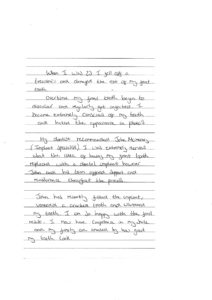 When I was 23 I fell off a
and damaged the end of my front
tooth.
Overtime my front tooth began to
discolour and regularly got infected. I
became extremely conscious of my teeth
and hated the appearance in photos.
My dentist recommended John Moloney
(Implant Specialist). I was extremely nervous
about the idea of having my front tooth
replaced with a dental implant however
John and his team against depart and
throughout the process.
John has recently fitted the implant,
veneered a crooked tooth and whitened
my teeth. I am so happy with the final
result. I now have confidence in my smile
and my family are amazed by how good
my teeth look.